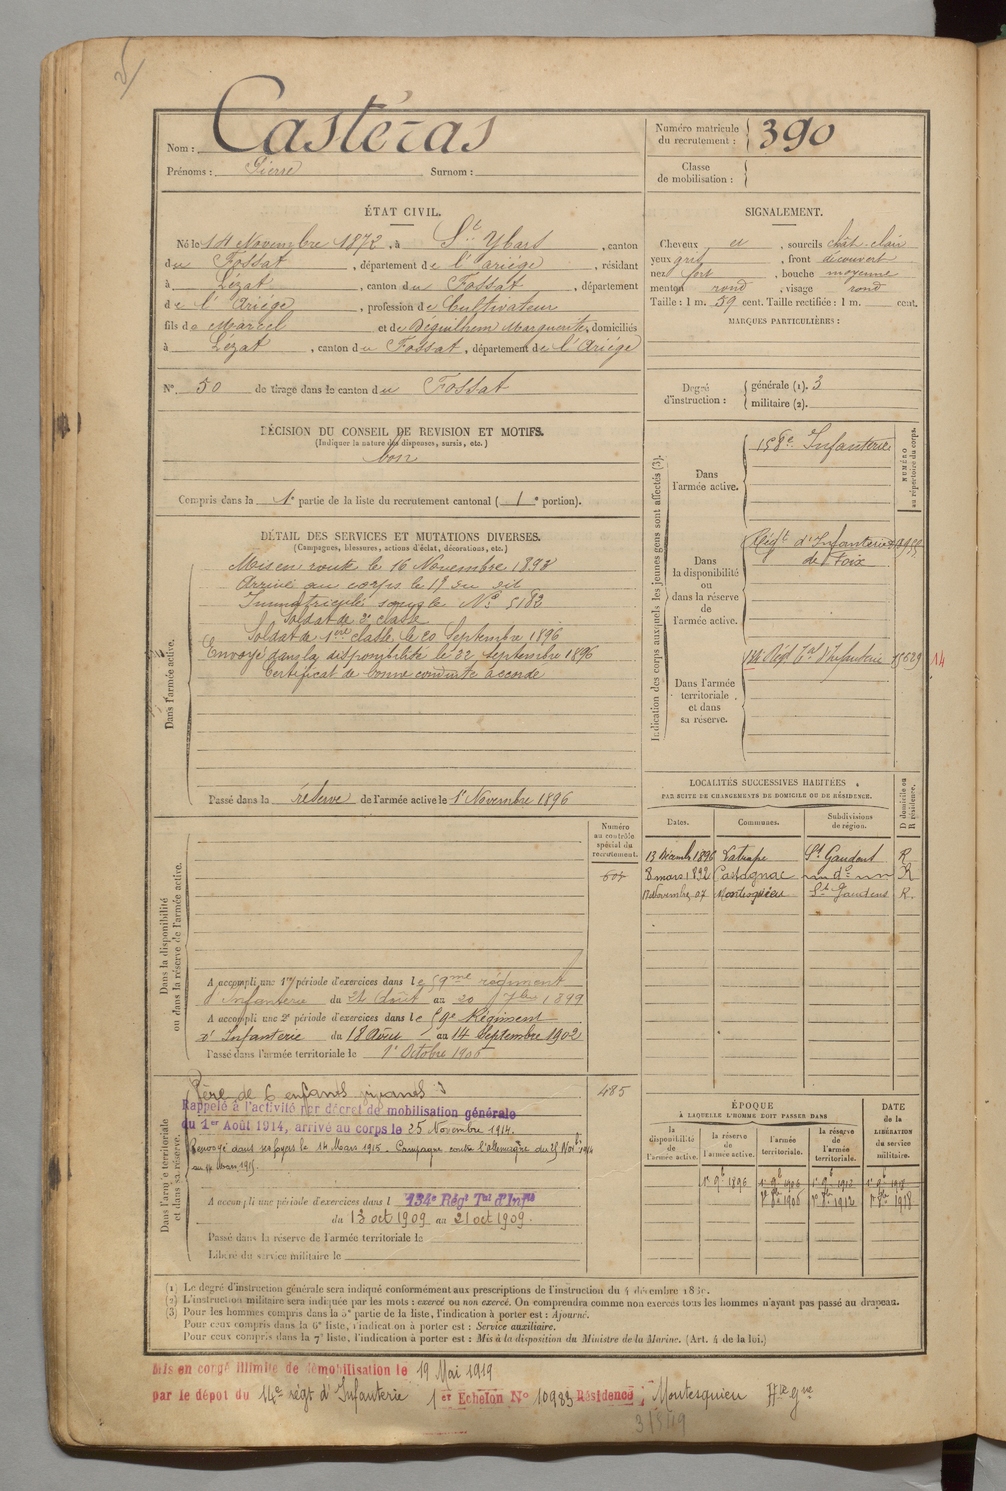 Nom : Castéras
Prénoms : Pierre Surnom :
Numéro matricule du recrutement : 390
Classe de mobilisation :
ÉTAT CIVIL.
Né le 14 Novembre 1872, à St Ybars, canton
du Fossat, département de l'ariége, résidant
à Lézat, canton du Fossat, département
de l'Ariége, profession de Cultivateur
fils de Marcel et de Déguilhem Marguerite, domiciliés
à Lézat, canton du Fossat, département de l'Ariége
N° 50 de tirage dans le canton du Fossat
SIGNALEMENT.
Cheveux et, sourcils chât. clair
yeux gris, front découvert
nez fort, bouche moyenne
menton rond, visage rond
Taille : 1 m. 59 cent. Taille rectifiée : 1 m. cent.
MARQUES PARTICULIÈRES :
Degré d'instruction : générale (1). 3
militaire (2).
DÉCISION DU CONSEIL DE REVISION ET MOTIFS.
(Indiquer la nature des dispenses, sursis, etc.)
bon
Compris dans la 1e partie de la liste du recrutement cantonal ( 1e portion).
DÉTAIL DES SERVICES ET MUTATIONS DIVERSES.
(Campagnes, blessures, actions d'éclat, décorations, etc.)
Dans l'armée active.
Mis en route le 16 Novembre 1893
Arrivé au corps le 17 du dit
Immatriculé sous le N° 5182
Soldat de 2e classe
Soldat de 1ère classe le 20 Septembre 1896
Envoyé dans la disponibilité le 22 septembre 1896
Certificat de bonne conduite accordé
Passé dans la réserve de l'armée active le 1er Novembre 1896
Indication des corps auxquels les jeunes gens sont affectés (3).
NUMÉRO au répertoire du corps.
Dans l'armée active.
158e Infanterie
Dans la disponibilité ou dans la réserve de l'armée active.
Régt d'Infanterie
de Foix
Dans l'armée territoriale et dans sa réserve.
134 Régt Tal d'Infanterie 15629 14
LOCALITÉS SUCCESSIVES HABITÉES
PAR SUITE DE CHANGEMENTS DE DOMICILE OU DE RÉSIDENCE.
Dates. Communes. Subdivisions de région. D domicile ou R résidence.
13 Décemb 1896 Latrape St Gaudent R
8 mars 1892 Castagnac do R
Novembre 07 Montesquieu St Gaudens R.
Dans la disponibilité ou dans la réserve de l'armée active.
Numéro au contrôle spécial du recrutement.
607
A accompli une 1re période d'exercices dans le 59me régiment
d'Infanterie du 21 Août au 20 7bre 1899
A accompli une 2e période d'exercices dans le 59e Régiment
d'Infanterie du 18 Août au 14 Septembre 1902
Passé dans l'armée territoriale le 1er Octobre 1906
Dans l'armée territoriale et dans sa réserve.
Père de 6 enfants vivants 485
Rappelé à l'activité par décret de mobilisation générale
du 1er Août 1914, arrivé au corps le 25 Novembre 1914.
Renvoyé dans ses foyers le 14 Mars 1915. Campagne contre l'Allemagne du 25 Nov 1914
au 14 Mars 1915.
A accompli une période d'exercices dans l 134e Régt Tal d'Infie
du 13 oct 1909 au 21 oct 1909.
Passé dans la réserve de l'armée territoriale le
Libéré du service militaire le
ÉPOQUE
À LAQUELLE L'HOMME DOIT PASSER DANS
DATE de la LIBÉRATION du service militaire.
la disponibilité de l'armée active. la réserve de l'armée active. l'armée territoriale. la réserve de l'armée territoriale.
1er 9b 1896 1er 9b 1906 1er 9b 1912 1er 9b 1918
1er 8bre 1906 1er 8bre 1912 1er 8bre 1918
(1) Le degré d'instruction générale sera indiqué conformément aux prescriptions de l'instruction du 4 décembre 1889.
(2) L'instruction militaire sera indiquée par les mots : exercé ou non exercé. On comprendra comme non exercés tous les hommes n'ayant pas passé au drapeau.
(3) Pour les hommes compris dans la 5e partie de la liste, l'indication à porter est : Ajourné.
Pour ceux compris dans la 6e liste, l'indication à porter est : Service auxiliaire.
Pour ceux compris dans la 7e liste, l'indication à porter est : Mis à la disposition du Ministre de la Marine. (Art. 4 de la loi.)
Mis en congé illimité de démobilisation le 19 Mai 1919
par le dépôt du 14e régt d'Infanterie 1er Echelon N° 10983 Résidence ; Montesquieu Hte Gne